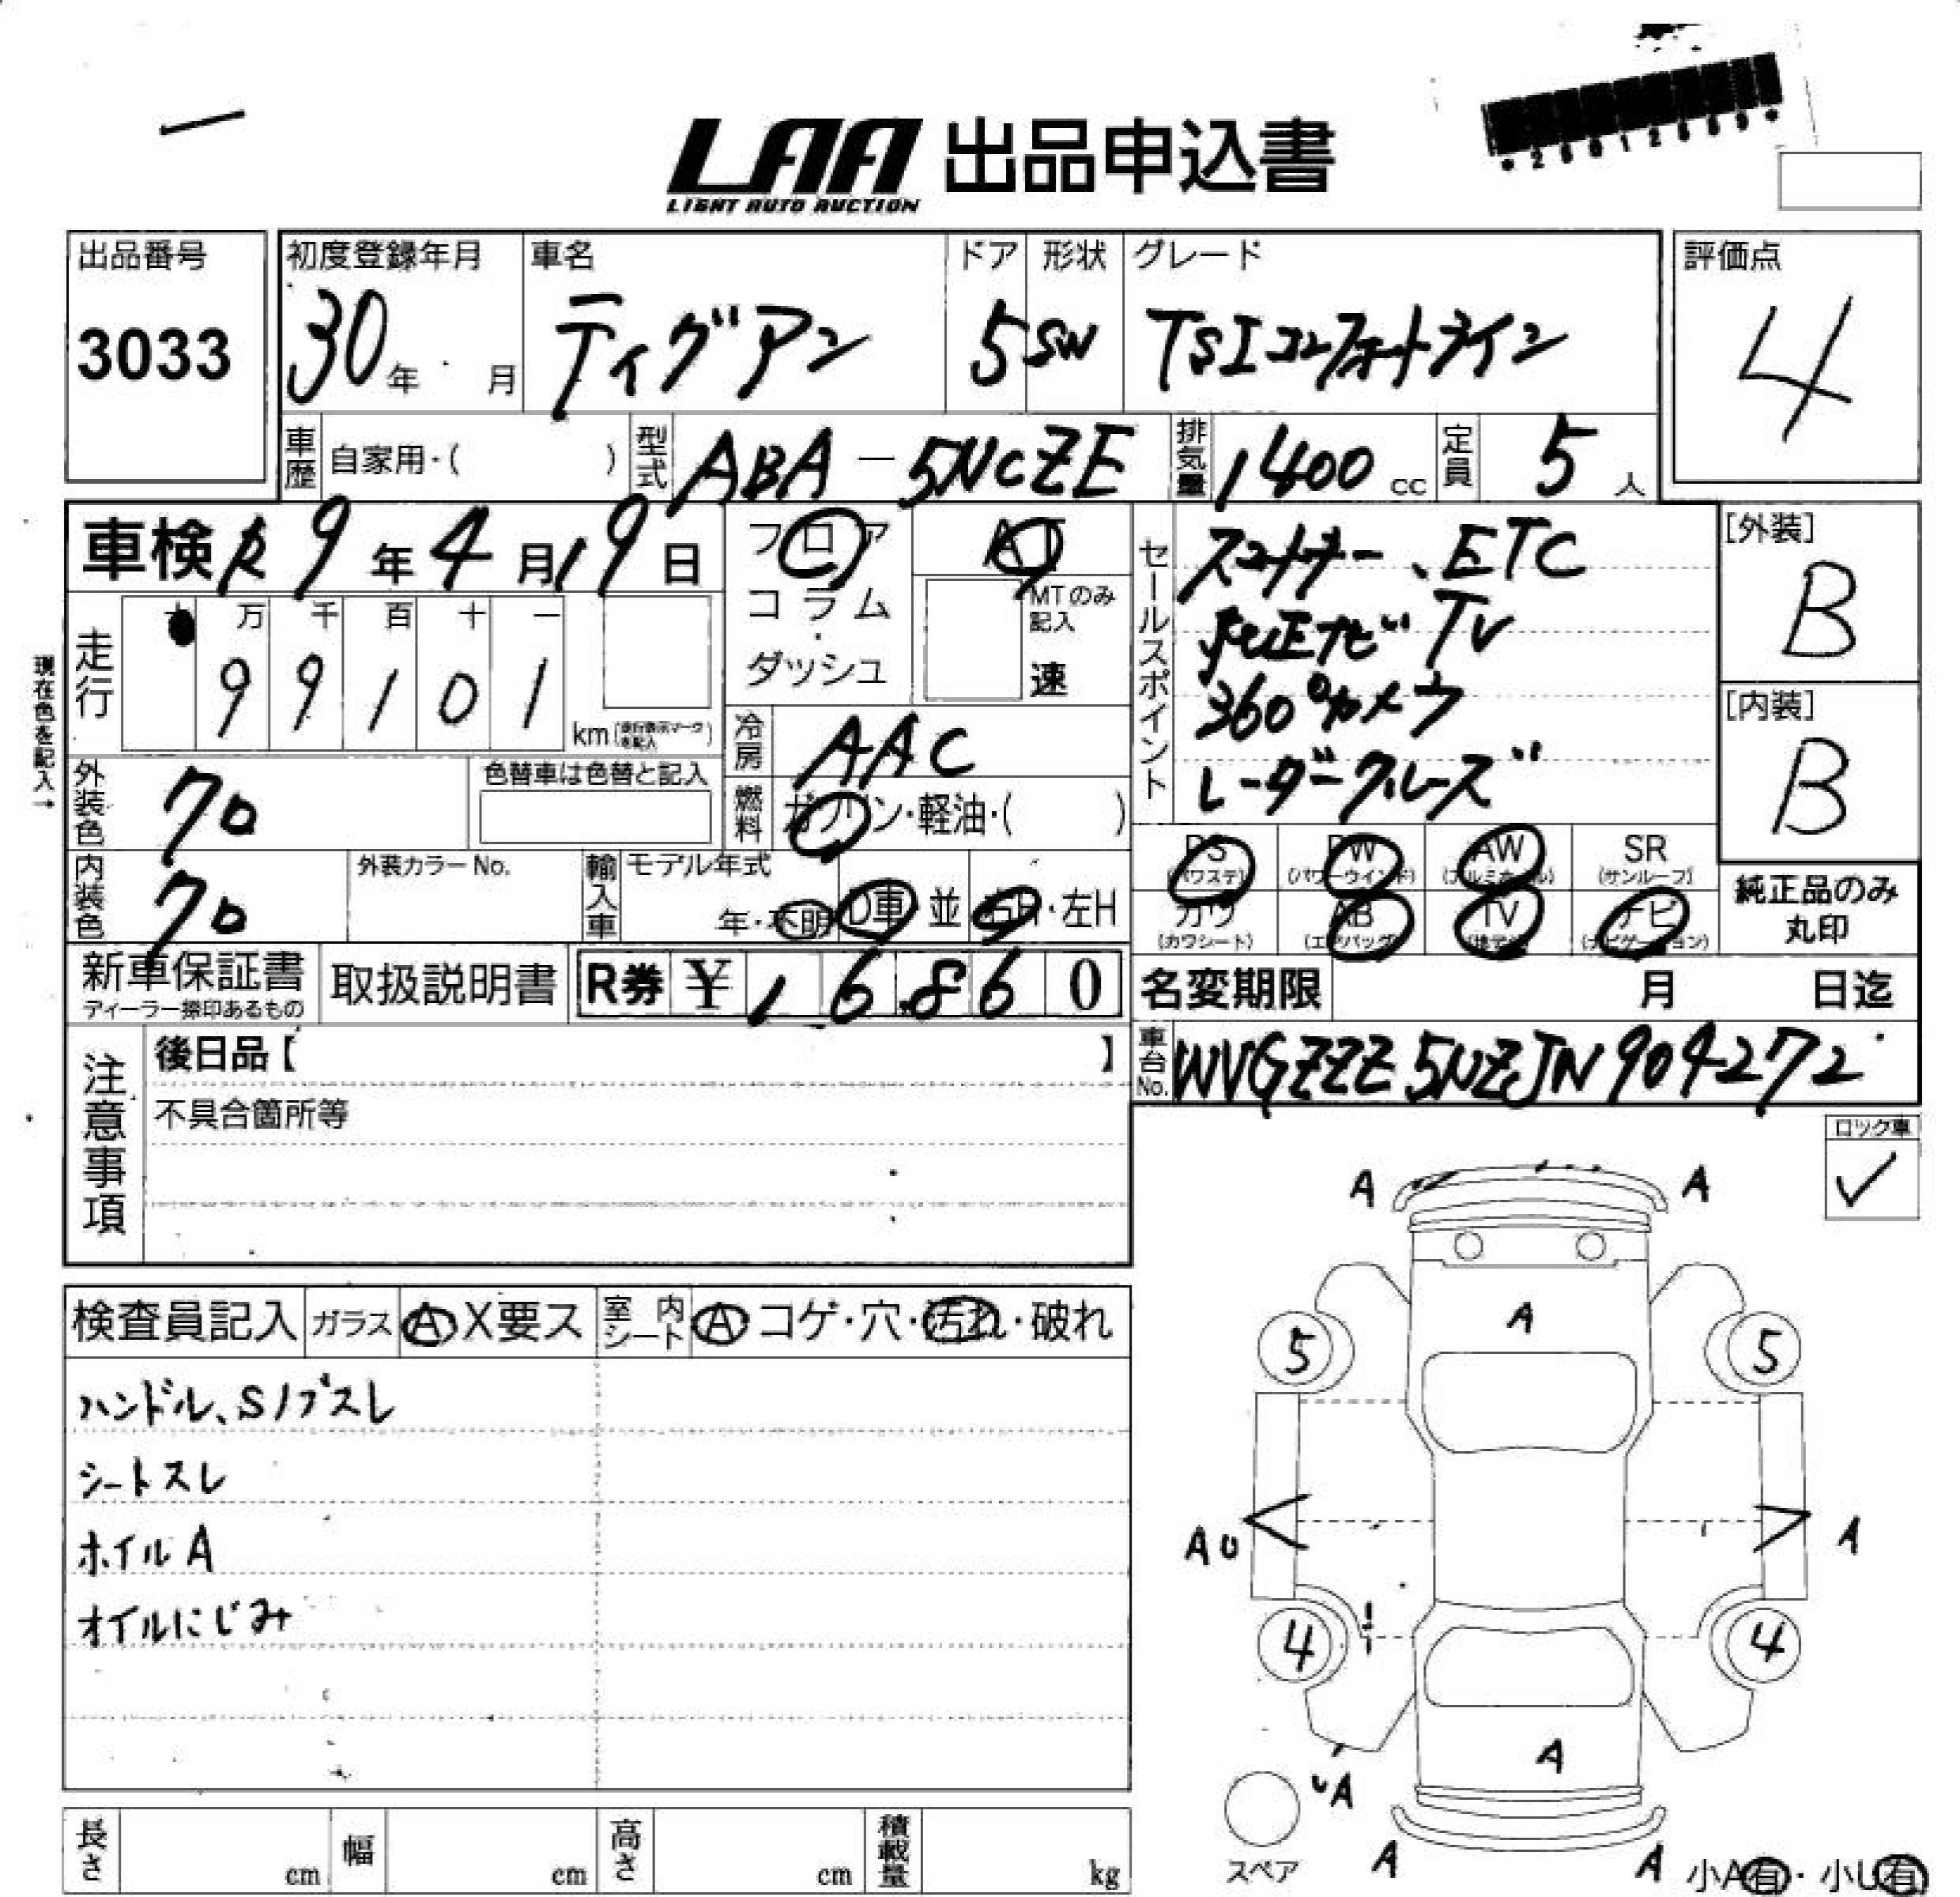 LAA 出品申込書
LIGHT AUTO AUCTION
出品番号
3033
初度登録年月
30年 月
車名
ティグアン
ドア
5
形状
SW
グレード
TSIコンフォートライン
評価点
4
車歴 自家用・( )
型式 ABA-5NCZE
排気量 1400 cc
定員 5 人
車検 R 9年4月19日
フロア
コラム
ダッシュ
AT
MTのみ記入
速
走行
万 千 百 十 一
9 9 1 0 1
km
現在色を記入→
冷房 AAC
燃料 ガソリン・軽油・( )
外装色 クロ
色替車は色替と記入
内装色 クロ
外装カラーNo.
輸入車 モデル年式
年・不明 D車 並 右H・左H
セールスポイント
スマートキー、ETC
純正ナビ TV
360°カメラ
レーダークルーズ
[外装]
B
[内装]
B
PS (パワステ)
PW (パワーウインド)
AW (アルミホイール)
SR (サンルーフ)
カワ (カワシート)
AB (エアバッグ)
TV (地デジ)
ナビ (ナビゲーション)
純正品のみ丸印
新車保証書
ディーラー捺印あるもの
取扱説明書
R券 ¥ 16,860
名変期限 月 日迄
車台No. WVGZZZ5NZJN904272
注意事項
後日品【 】
不具合箇所等
ロック車
✓
検査員記入
ガラス A X要ス
室内シート A コゲ・穴・汚れ・破れ
ハンドル、Sノブスレ
シートスレ
ホイルA
オイルにじみ
A A
A
5 5
AU A
4 4
A
UA
A A
スペア
小A有・小U有
長さ cm
幅 cm
高さ cm
積載量 kg